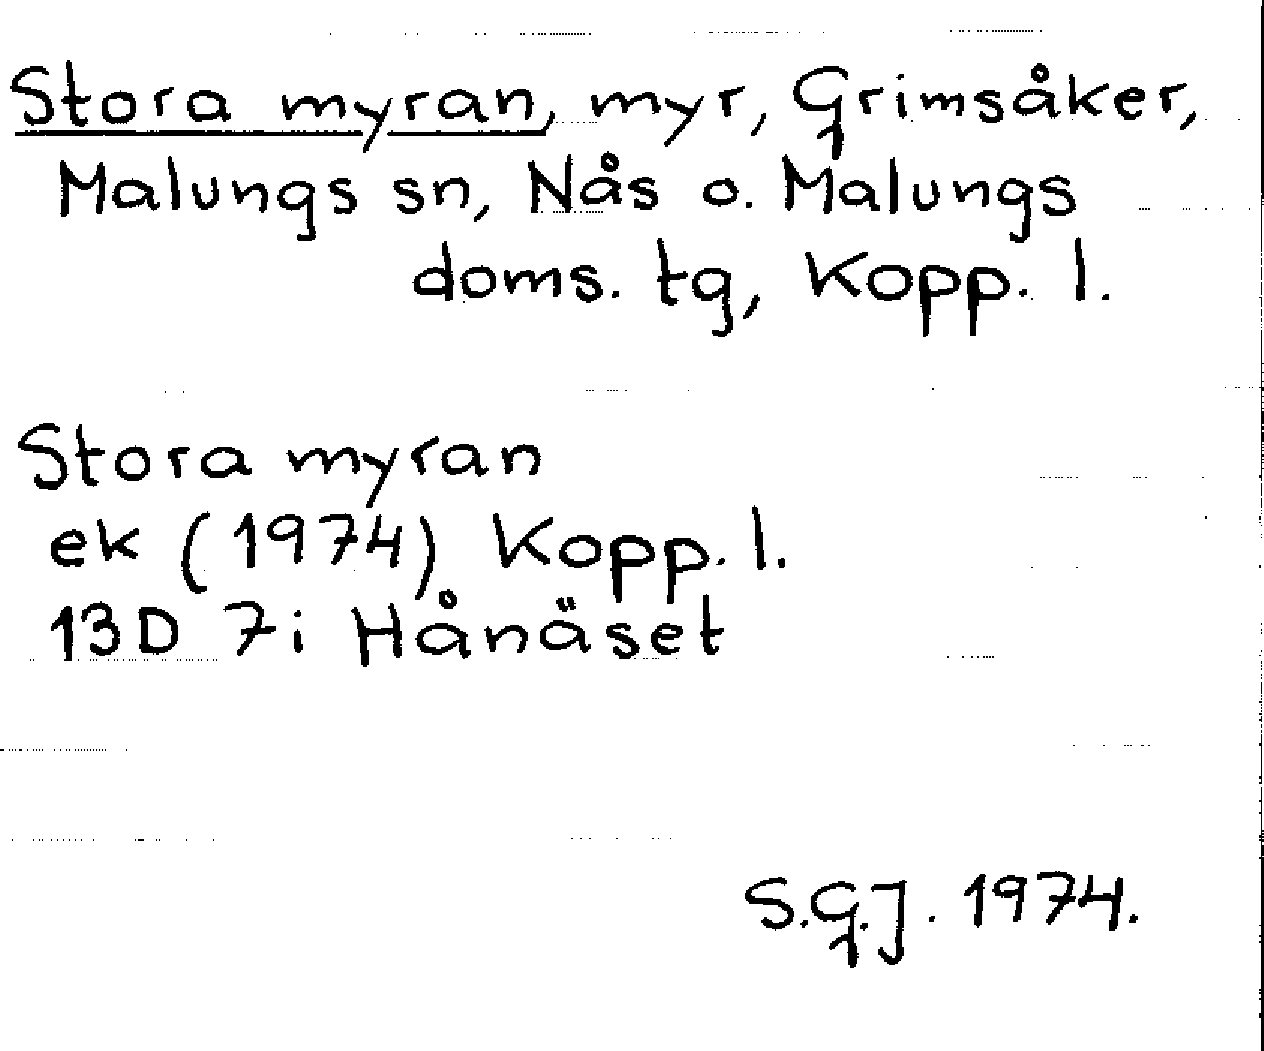 Stora myran, myr, Grimsåker,
Malungs sn, Nås o. Malungs
doms. tg, Kopp. l.
Stora myran
ek (1974) Kopp. l.
13D 7i Hånäset
S.G.J. 1974.